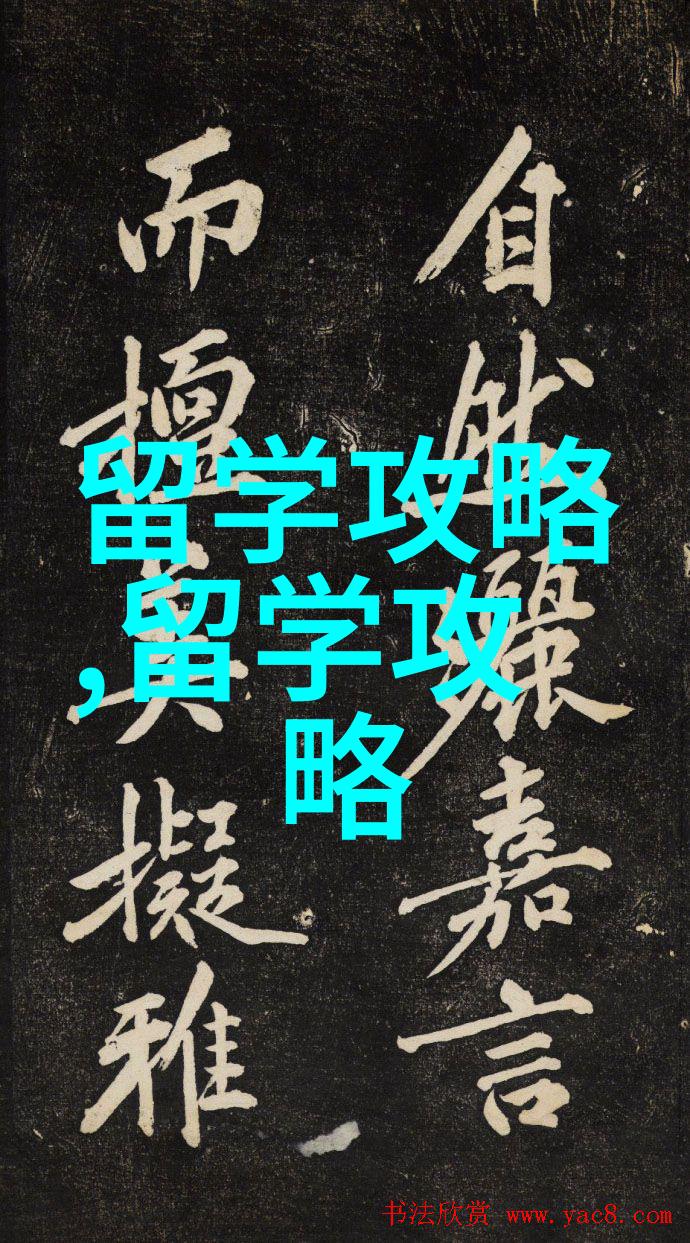 自然嘉言
而擅擬雅
留学攻略
,留学攻
略
书法欣赏 www.yac8.com